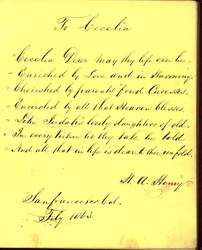 To Cecelia
Cecelia Dear may thy life ever be.
Enriched by Love and in Harmony.
Cherished by parents fond Caresses.
Encircled by all that Heaven blesses.
Like Judah's lovely daughters of old.
In every virtue let thy tale be told.
And all that in life is dear to thee unfold.
H. A. Henry
San Francisco Cal.
July 1863.